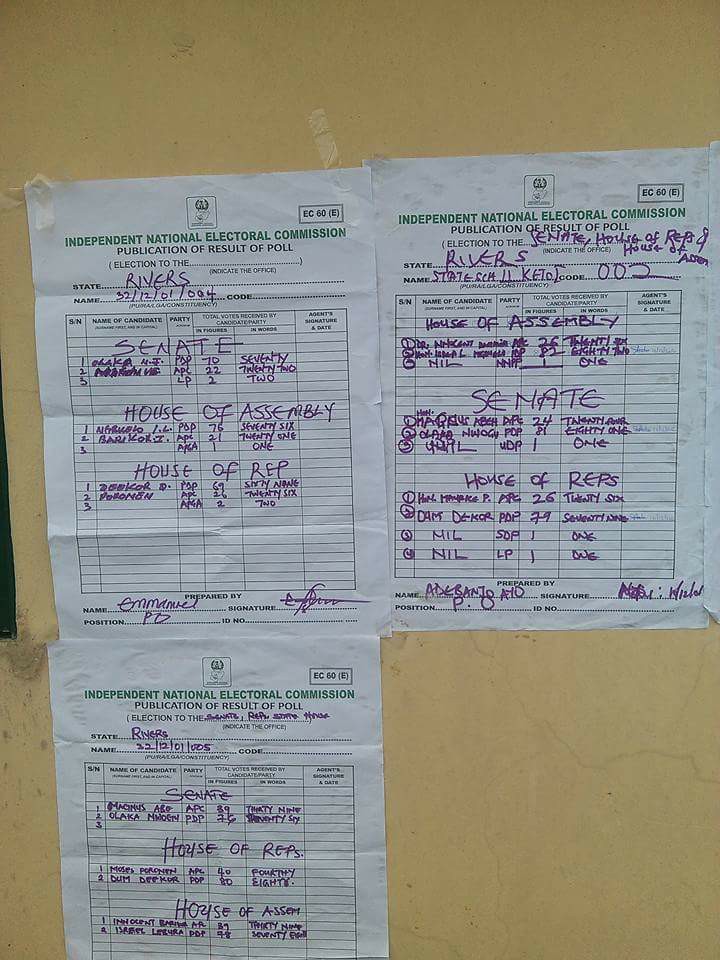 EC 60 (E)
INDEPENDENT NATIONAL ELECTORAL COMMISSION
PUBLICATION OF RESULT OF POLL
( ELECTION TO THE..............................)
(INDICATE THE OFFICE)
STATE RIVERS
NAME 32/12/01/004 CODE
(PU/RA/LGA/CONSTITUENCY)
S/N NAME OF CANDIDATE PARTY TOTAL VOTES RECEIVED BY CANDIDATE/PARTY AGENT'S SIGNATURE & DATE
(SURNAME FIRST, AND IN CAPITAL) IN FIGURES IN WORDS
SENATE
1 OLAKA PDP 70 SEVENTY
2 APC 22 TWENTY TWO
3 LP 2 TWO
HOUSE OF ASSEMBLY
1 I.L. PDP 76 SEVENTY SIX
2 BARIKOR I. APC 21 TWENTY ONE
3 APGA 1 ONE
HOUSE OF REP
1 DEEKOR D. PDP 69 SIXTY NINE
2 POROMEN APC 26 TWENTY SIX
3 APGA 2 TWO
PREPARED BY
NAME Emmanuel SIGNATURE
POSITION PO ID NO
EC 60 (E)
INDEPENDENT NATIONAL ELECTORAL COMMISSION
PUBLICATION OF RESULT OF POLL
( ELECTION TO THE SENATE, HOUSE OF REPS &
(INDICATE THE OFFICE) HOUSE OF ASSEM
STATE RIVERS
NAME STATE SCH II KETO/ CODE 003
(PU/RA/LGA/CONSTITUENCY)
S/N NAME OF CANDIDATE PARTY TOTAL VOTES RECEIVED BY CANDIDATE/PARTY AGENT'S SIGNATURE & DATE
(SURNAME FIRST, AND IN CAPITAL) IN FIGURES IN WORDS
HOUSE OF ASSEMBLY
1 DR. INNOCENT BARIKOR APC 26 TWENTY SIX
2 HON. PDP 82 EIGHTY TWO
3 NIL NNPP 1 ONE
SENATE
1 HON. MAGNUS ABEH APC 24 TWENTY FOUR
2 OLAKA NWOGU PDP 81 EIGHTY ONE
3 NIL UDP 1 ONE
HOUSE OF REPS
1 HON. MAURICE P. APC 26 TWENTY SIX
2 DUM DEKOR PDP 79 SEVENTY NINE
3 NIL SDP 1 ONE
4 NIL LP 1 ONE
PREPARED BY
NAME ADEBANJO AYO SIGNATURE
POSITION P.O ID NO
EC 60 (E)
INDEPENDENT NATIONAL ELECTORAL COMMISSION
PUBLICATION OF RESULT OF POLL
( ELECTION TO THE SENATE, REP, STATE HOUSE
(INDICATE THE OFFICE)
STATE RIVERS
NAME 32/12/01/005 CODE
(PU/RA/LGA/CONSTITUENCY)
S/N NAME OF CANDIDATE PARTY TOTAL VOTES RECEIVED BY CANDIDATE/PARTY AGENT'S SIGNATURE & DATE
(SURNAME FIRST, AND IN CAPITAL) IN FIGURES IN WORDS
SENATE
1 MAGNUS ABE APC 39 THIRTY NINE
2 OLAKA NWOGU PDP 76 SEVENTY SIX
3
HOUSE OF REPS.
1 MOSES POROMEN APC 40 FOURTHY
2 DUM DEEKOR PDP 80 EIGHTY.
HOUSE OF ASSEM
1 INNOCENT BARIKOR APC 39 THIRTY NINE
2 ISRAEL LEBURA PDP 78 SEVENTY EIGHT